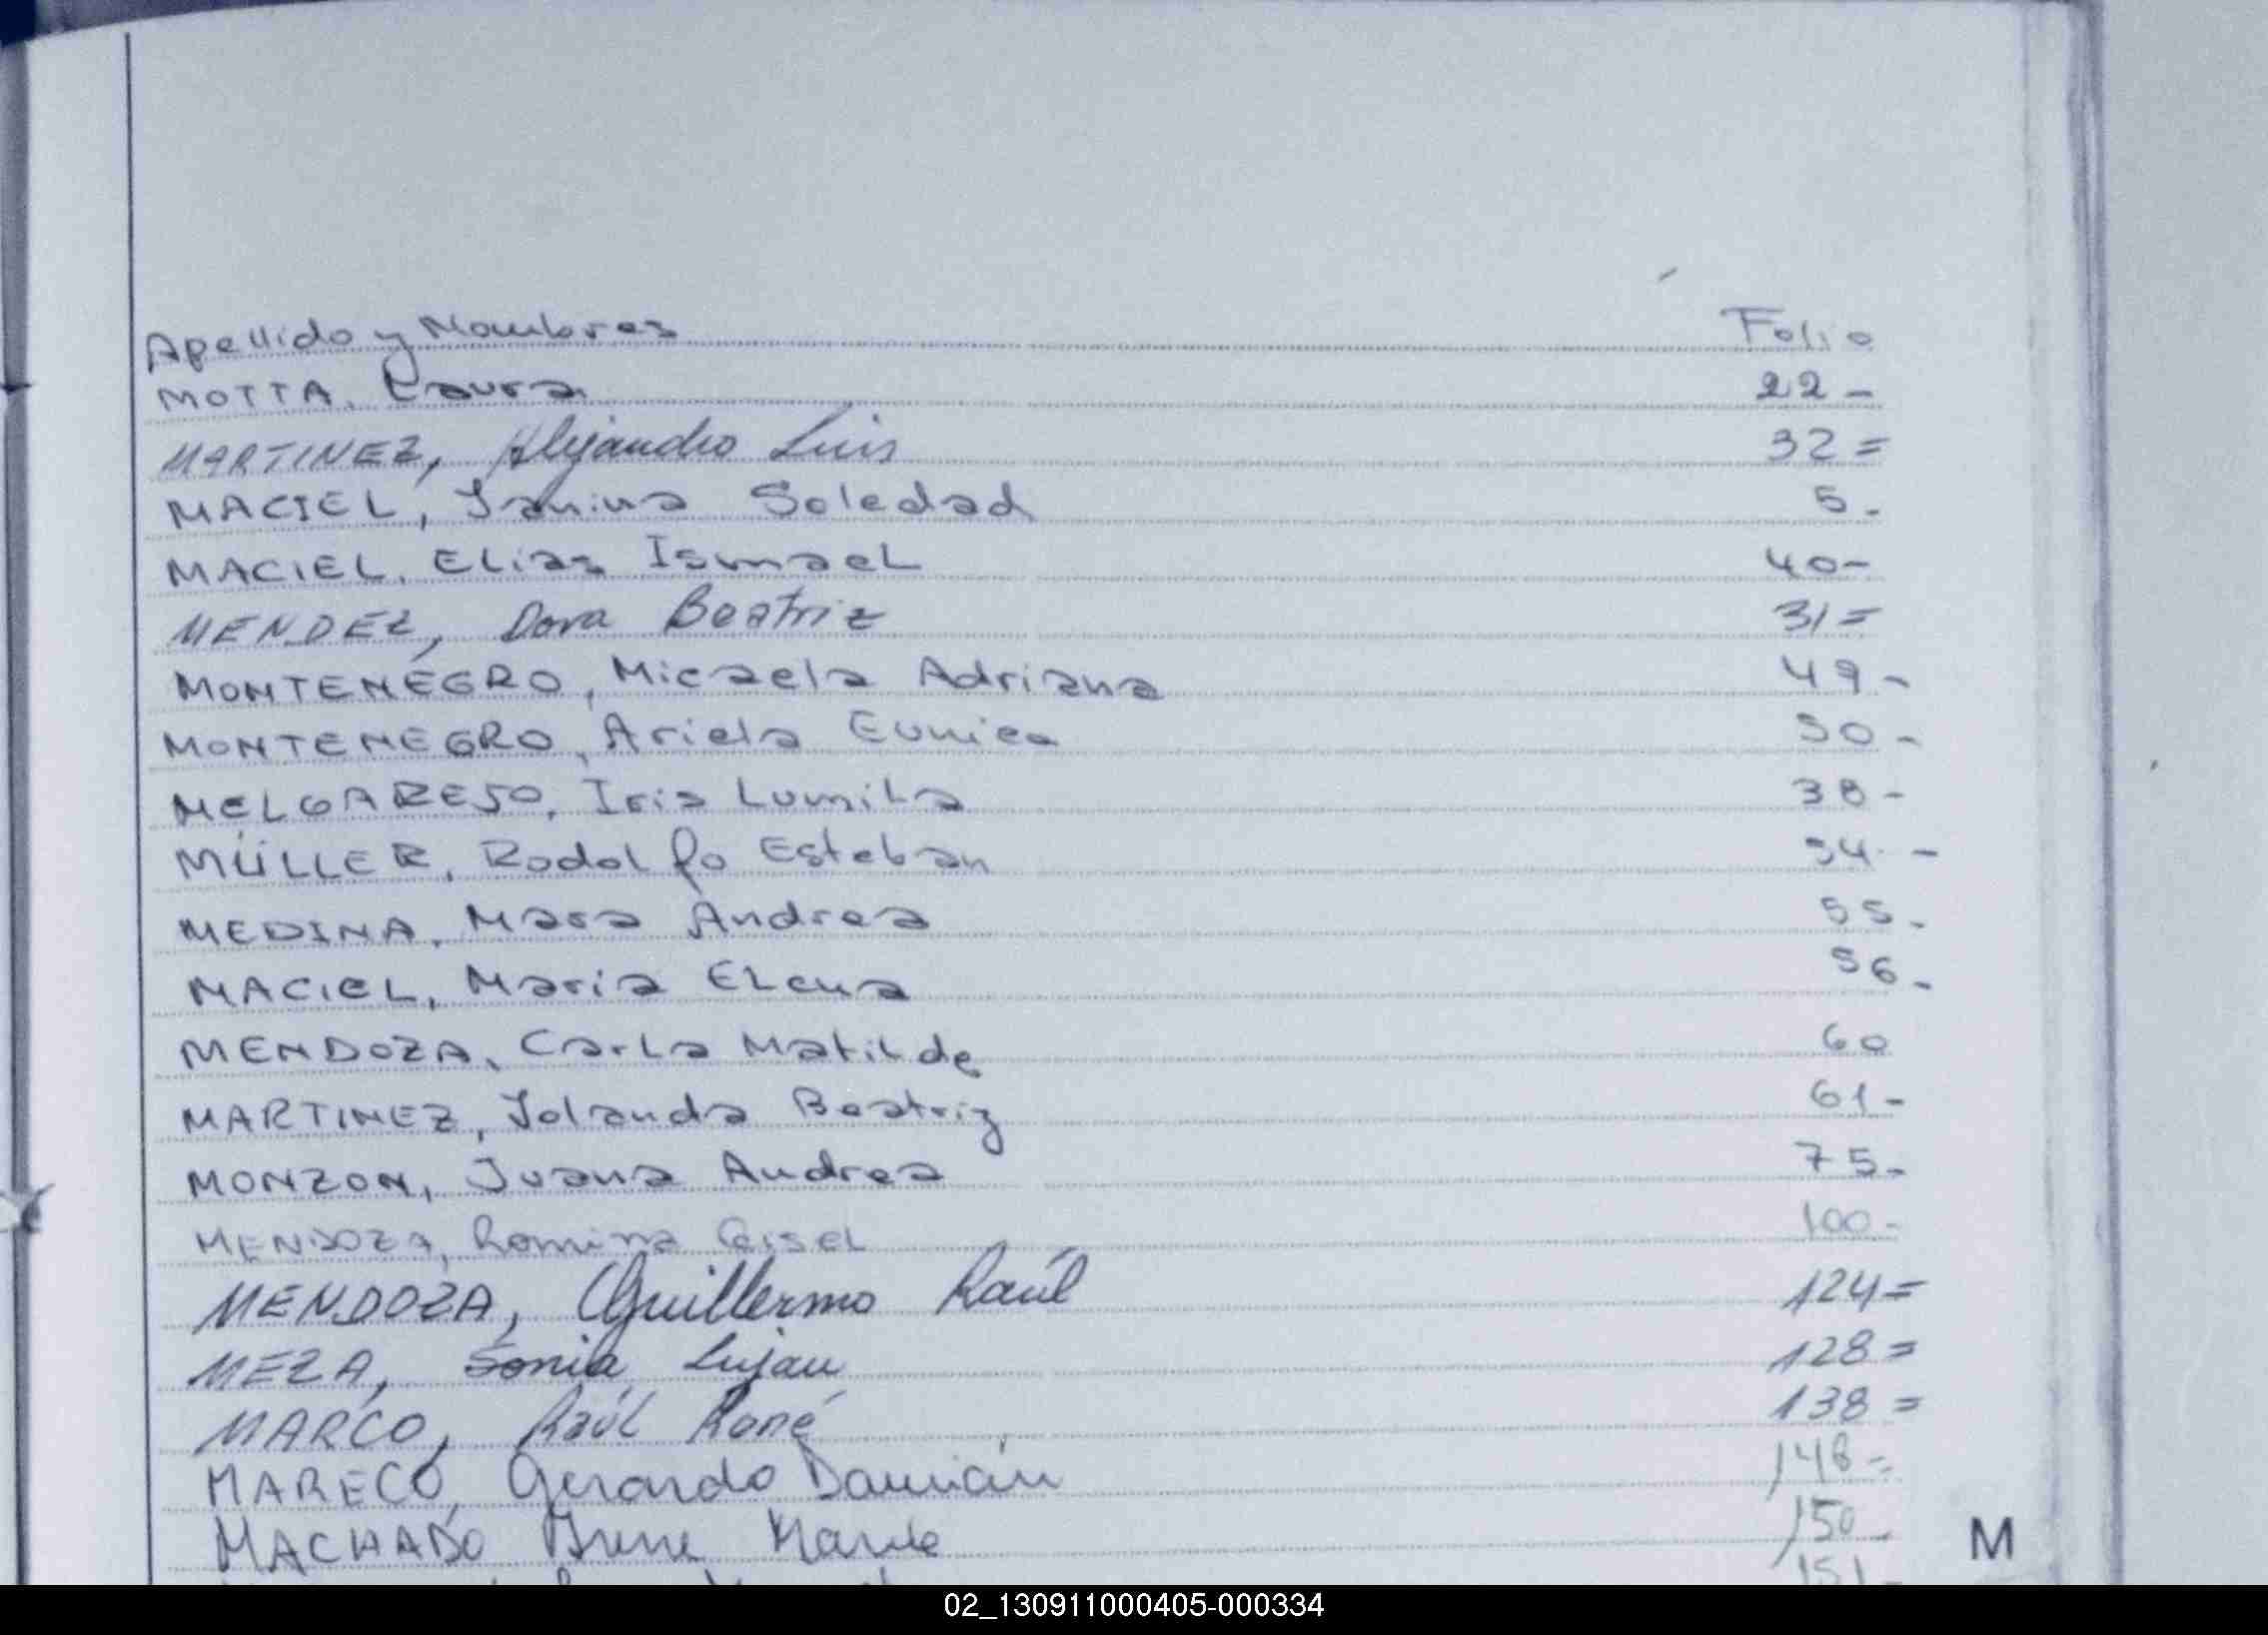 Apellido y Nombres Folio
MOTTA, Laura 22-
MARTINEZ, Alejandro Luis 32=
MACIEL, Yanina Soledad 5-
MACIEL, Elias Ismael 40-
MENDEZ, Dora Beatriz 31=
MONTENEGRO, Micaela Adriana 49-
MONTENEGRO, Ariela Eunice 50-
MELGAREJO, Iris Lumila 38-
MÜLLER, Rodolfo Esteban 54-
MEDINA, Mara Andrea 55-
MACIEL, Maria Elena 56-
MENDOZA, Carla Matilde 60
MARTINEZ, Yolanda Beatriz 61-
MONZON, Juana Andrea 75-
MENDOZA, Romina Gisel 100-
MENDOZA, Guillermo Raúl 124=
MEZA, Sonia Lujan 128=
MARCO, Raúl René 138=
MARECO, Gerardo Damián 148=
MACHADO Irene 150-
M
151-
02_130911000405-000334